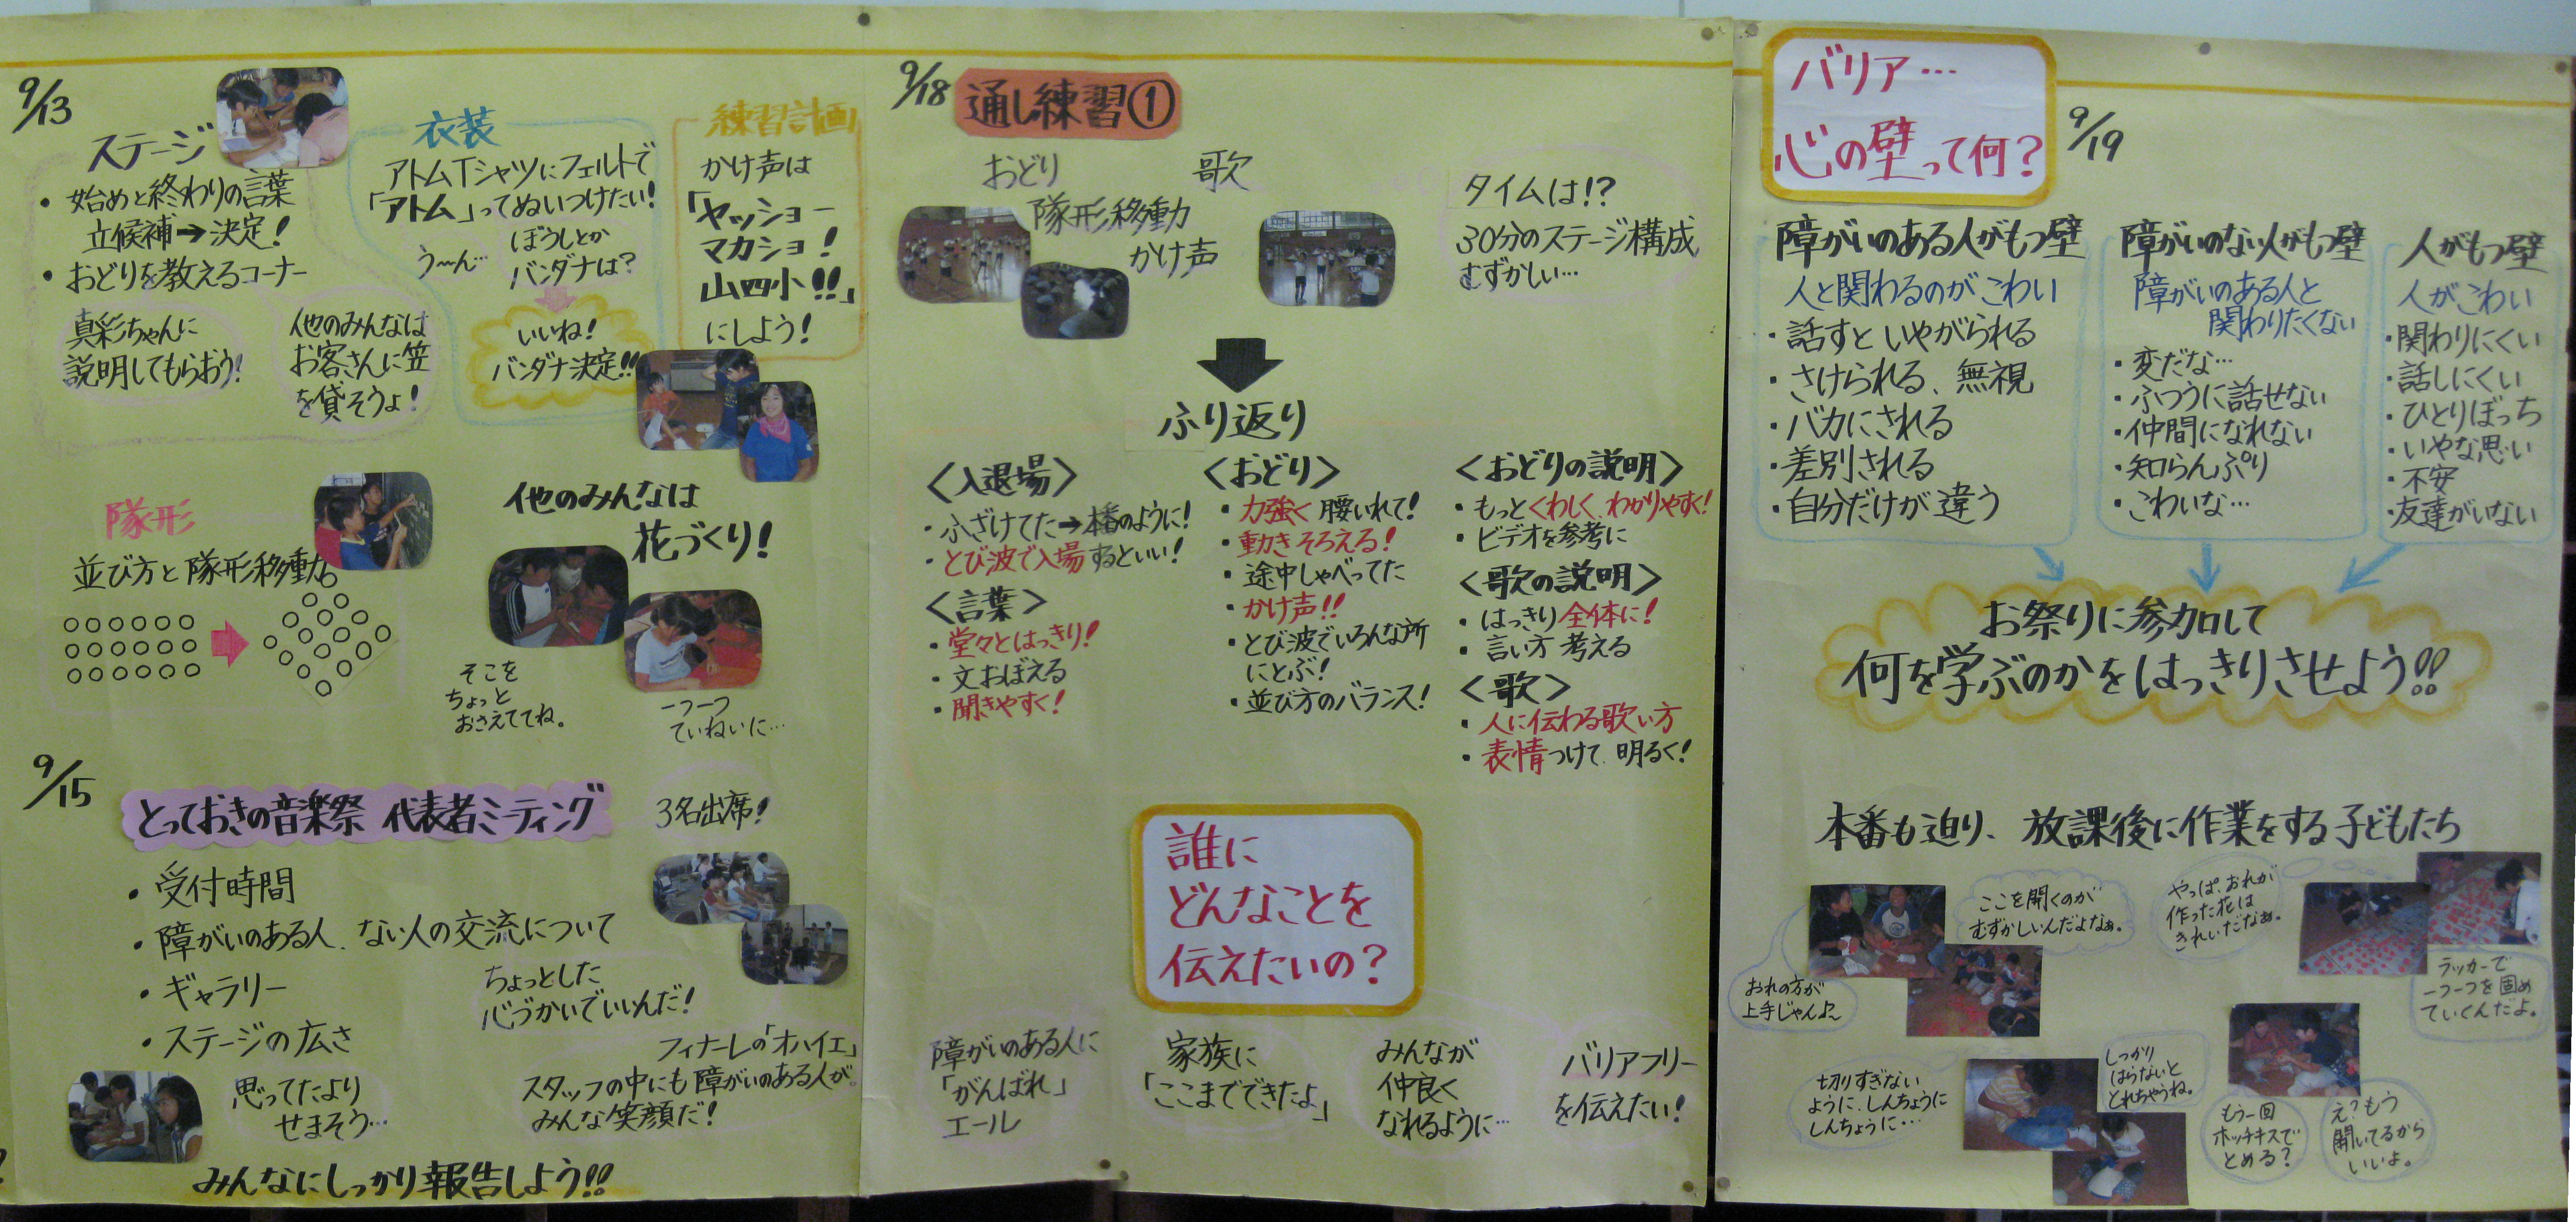 9/13
ステージ
・始めと終わりの言葉
立候補→決定!
・おどりを教えるコーナー
真彩ちゃんに
説明してもらおう!
他のみんなは
お客さんに笠
を貸そうよ!
衣装
アトムTシャツにフェルトで
「アトム」ってぬいつけたい!
う〜ん…
ぼうしとか
バンダナは?
いいね!
バンダナ決定!!
練習計画
かけ声は
「ヤッショー
マカショ!
山四小!!」
にしよう!
隊形
並び方と隊形移動。
他のみんなは
花づくり!
そこを
ちょっと
おさえててね。
一つ一つ
ていねいに…
9/15
とっておきの音楽祭 代表者ミーティング
3名出席!
・受付時間
・障がいのある人、ない人の交流について
・ギャラリー
・ステージの広さ
ちょっとした
心づかいでいいんだ!
思ってたより
せまそう…
フィナーレの「オハイエ」
スタッフの中にも障がいのある人が。
みんな笑顔だ!
みんなにしっかり報告しよう!!
9/18
通し練習①
おどり
歌
隊形移動
かけ声
タイムは!?
30分のステージ構成
むずかしい…
ふり返り
<入退場>
・ふざけてた→本番のように!
・とび波で入場するといい!
<言葉>
・堂々とはっきり!
・文おぼえる
・聞きやすく!
<おどり>
・力強く 腰いれて!
・動きそろえる!
・途中しゃべってた
・かけ声!!
・とび波でいろんな所
にとぶ!
・並び方のバランス!
<おどりの説明>
・もっとくわしく、わかりやすく!
・ビデオを参考に
<歌の説明>
・はっきり全体に!
・言い方 考える
<歌>
・人に伝わる歌い方
・表情つけて、明るく!
誰に
どんなことを
伝えたいの?
障がいのある人に
「がんばれ」
エール
家族に
「ここまでできたよ」
みんなが
仲良く
なれるように…
バリアフリー
を伝えたい!
バリア…
心の壁って何?
9/19
障がいのある人がもつ壁
人と関わるのがこわい
・話すといやがられる
・さけられる、無視
・バカにされる
・差別される
・自分だけが違う
障がいのない人がもつ壁
障がいのある人と
関わりたくない
・変だな…
・ふつうに話せない
・仲間になれない
・知らんぷり
・こわいな…
人がもつ壁
人がこわい
・関わりにくい
・話しにくい
・ひとりぼっち
・いやな思い
・不安
・友達がいない
お祭りに参加して
何を学ぶのかをはっきりさせよう!!
本番も迫り、放課後に作業をする子どもたち
ここを開くのが
むずかしいんだよなぁ。
やっぱ、おれが
作った花は
きれいだなぁ。
おれの方が
上手じゃん♪〜
ラッカーで
一つ一つを固め
ていくんだよ。
切りすぎない
ように、しんちょうに
しんちょうに…
しっかり
はらないと
とれちゃうね。
もう一回
ホッチキスで
とめる?
え?もう
開いてるから
いいよ。